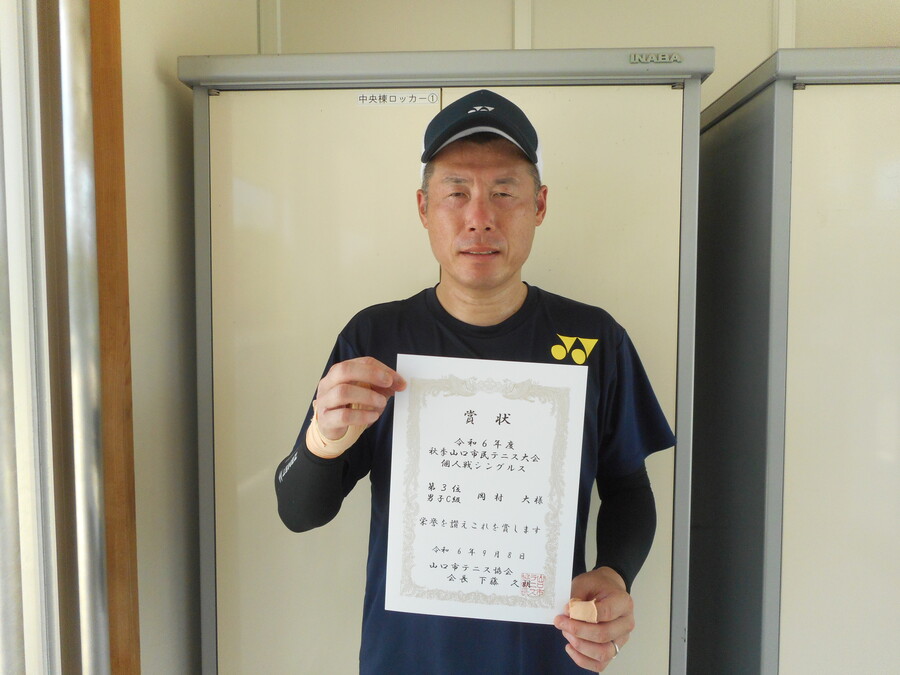 INABA
中央棟ロッカー①
賞状
令和6年度
秋季山口市民テニス大会
個人戦シングルス
第3位
男子C級 岡村 大様
栄誉を讃えこれを賞します
令和6年9月8日
山口市テニス協会
会長 下藤 久